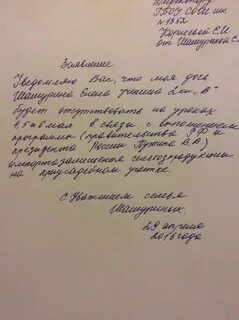 Директору
ГБОУ СОШ
№1362
Корнеевой Е.И
от Шашуриной С.
Заявление
Уведомляю Вас, что моя дочь
Шашурина Елена ученица 2 кл. "В"
будет отсутствовать на уроках
4, 5 и 6 мая в связи с выполнением
программы (правительства РФ и
президента России Путина В.В)
импортозамещения сельхозпродукции
на приусадебном участке.
С Уважением семья
Шашуриных.
29 апреля
2016 года.